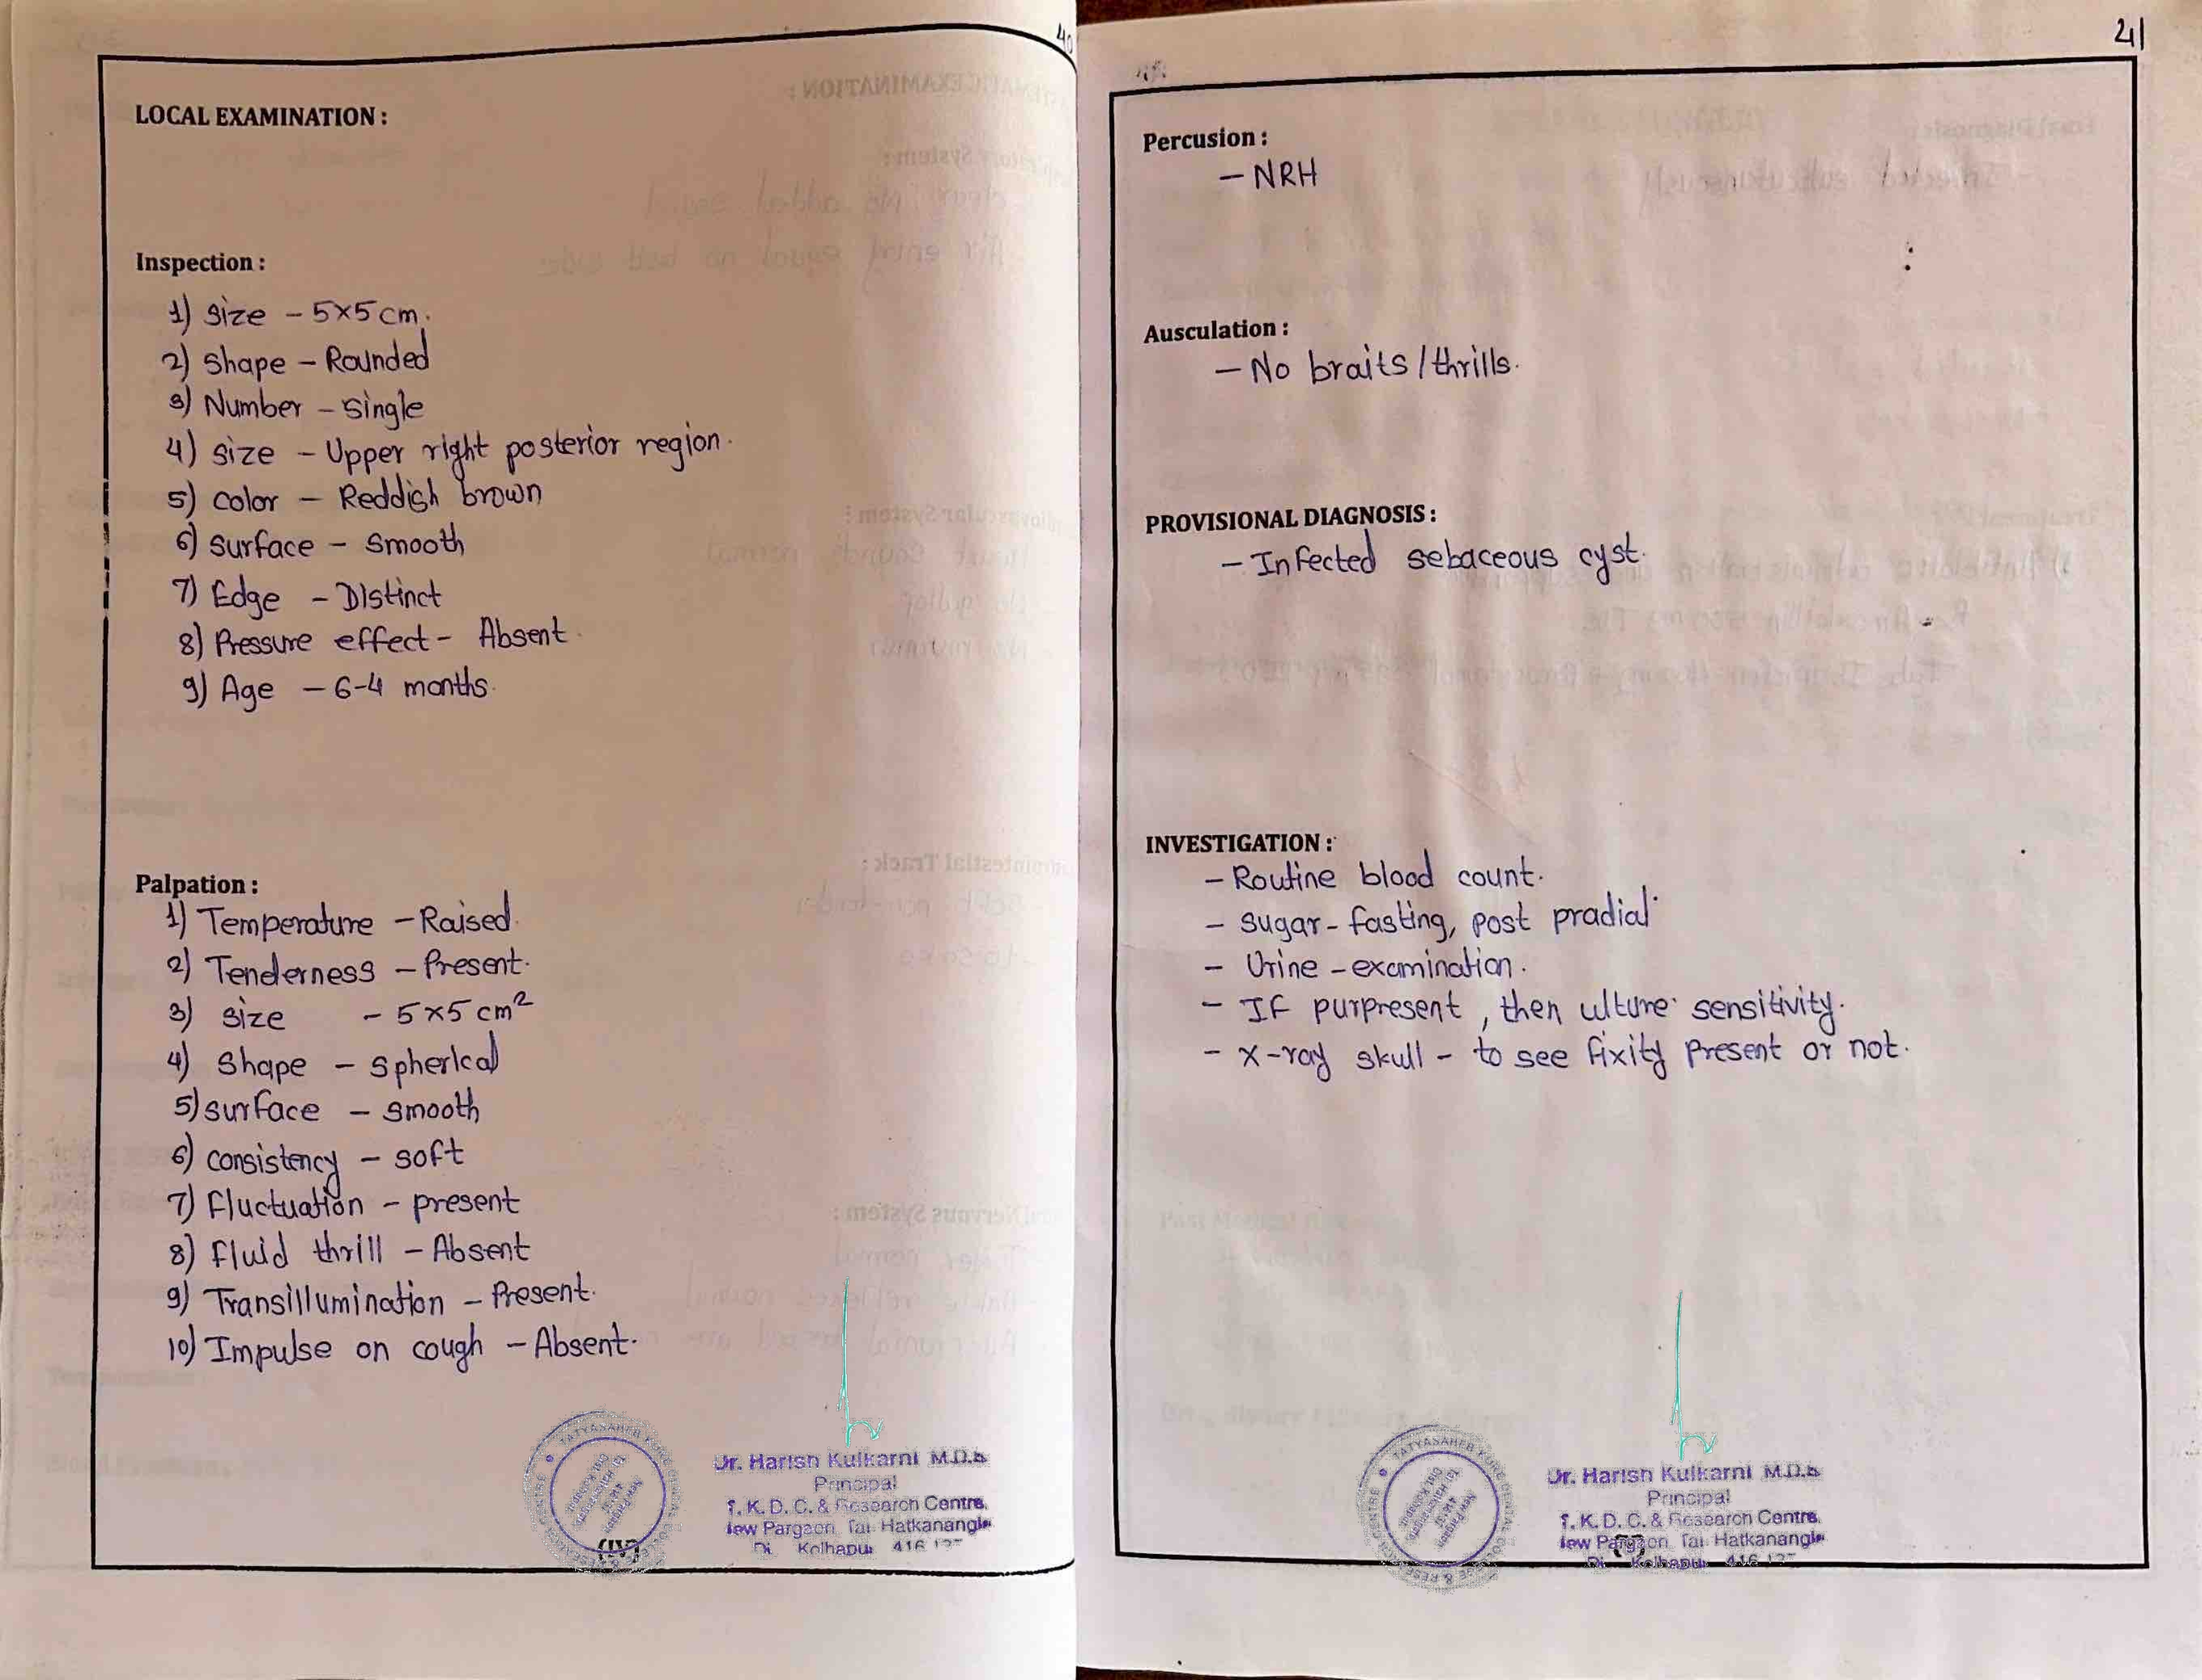 40
LOCAL EXAMINATION :
Inspection :
1) Size - 5x5 cm.
2) Shape - Rounded
3) Number - single
4) size - Upper right posterior region.
5) color - Reddish brown
6) surface - smooth
7) Edge - Distinct
8) Pressure effect - Absent.
9) Age - 6-4 months.
Palpation :
1) Temperature - Raised.
2) Tenderness - Present.
3) size - 5x5 cm²
4) Shape - spherical
5) surface - smooth
6) consistency - soft
7) Fluctuation - present
8) Fluid thrill - Absent
9) Transillumination - Present.
10) Impulse on cough - Absent.
Dr. Harish Kulkarni M.D.S
Principal
T. K. D. C. & Research Centre,
New Pargaon, Tal. Hatkanangle
Di Kolhapur 416 137
(IV)
41
Percusion :
- NRH
Ausculation :
- No braits / thrills.
PROVISIONAL DIAGNOSIS :
- Infected sebaceous cyst.
INVESTIGATION :
- Routine blood count.
- sugar - fasting, post pradial
- Urine - examination.
- If purpresent, then ulture sensitivity.
- X-ray skull - to see fixity present or not.
Dr. Harish Kulkarni M.D.S
Principal
T. K. D. C. & Research Centre,
New Pargaon, Tal. Hatkanangle
Di Kolhapur 416 137